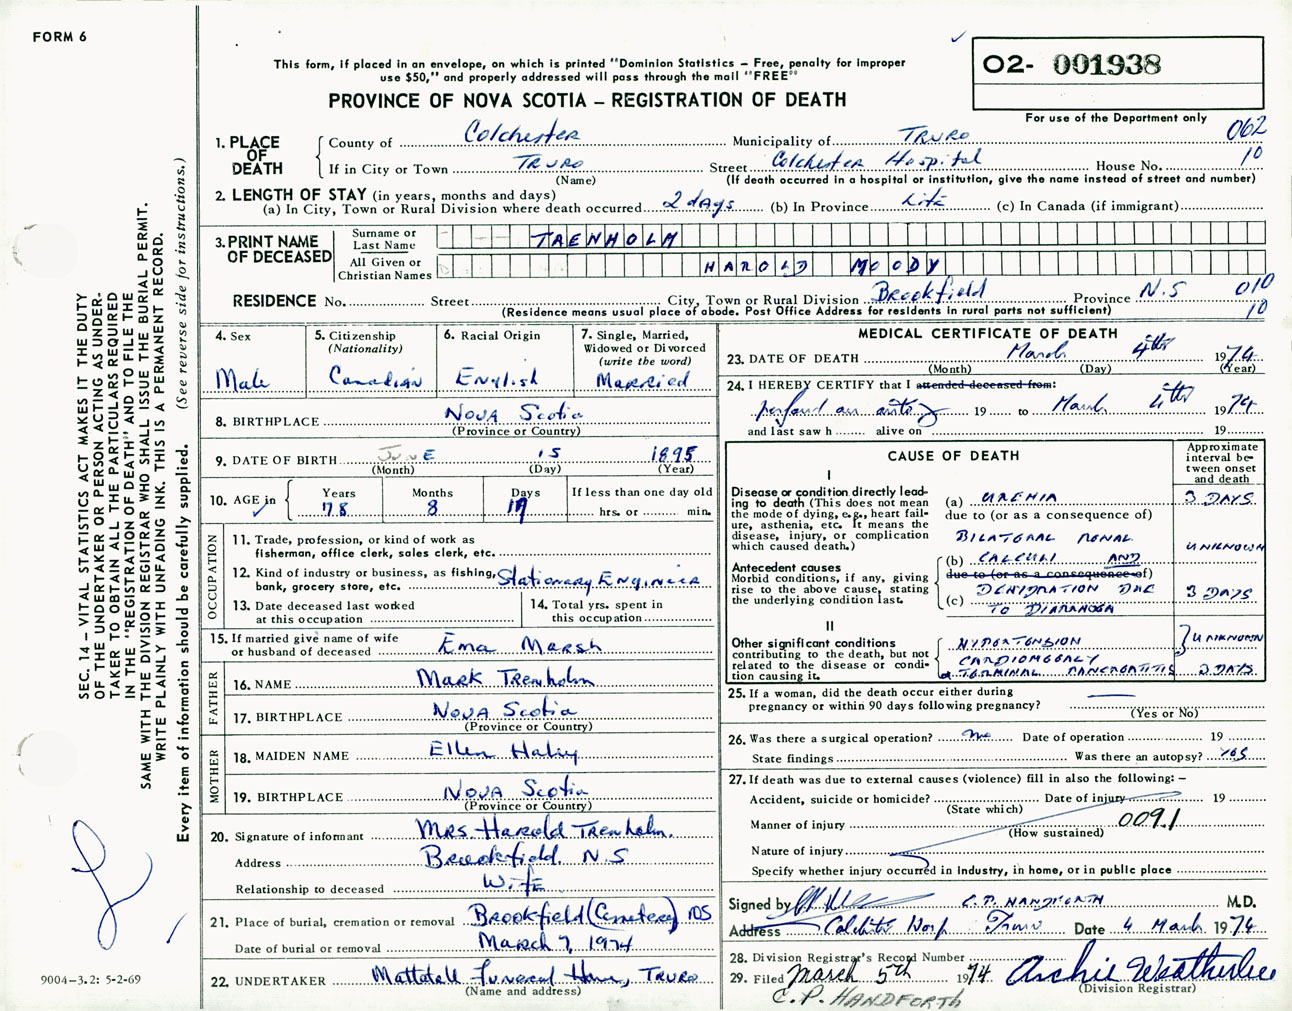 FORM 6
This form, if placed in an envelope, on which is printed "Dominion Statistics – Free, penalty for improper
use $50," and properly addressed will pass through the mail "FREE"
PROVINCE OF NOVA SCOTIA – REGISTRATION OF DEATH
O2- 001938
For use of the Department only
062
10
1. PLACE OF DEATH
County of Colchester Municipality of TRURO
If in City or Town TRURO Street Colchester Hospital House No.
(Name) (If death occurred in a hospital or institution, give the name instead of street and number)
2. LENGTH OF STAY (in years, months and days)
(a) In City, Town or Rural Division where death occurred 2 days (b) In Province Life (c) In Canada (if immigrant)
3. PRINT NAME OF DECEASED
Surname or Last Name TRENHOLM
All Given or Christian Names HAROLD MOODY
RESIDENCE No. Street City, Town or Rural Division Brookfield Province N.S 010
(Residence means usual place of abode. Post Office Address for residents in rural parts not sufficient) 10
4. Sex
Male
5. Citizenship
(Nationality)
Canadian
6. Racial Origin
English
7. Single, Married,
Widowed or Divorced
(write the word)
Married
8. BIRTHPLACE Nova Scotia
(Province or Country)
9. DATE OF BIRTH JUNE 15 1895
(Month) (Day) (Year)
10. AGE in
Years Months Days If less than one day old
78 8 hrs. or min.
OCCUPATION
11. Trade, profession, or kind of work as
fisherman, office clerk, sales clerk, etc.
12. Kind of industry or business, as fishing, Stationary Engineer
bank, grocery store, etc.
13. Date deceased last worked
at this occupation
14. Total yrs. spent in
this occupation
15. If married give name of wife
or husband of deceased Ema Marsh
FATHER
16. NAME Mark Trenholm
17. BIRTHPLACE Nova Scotia
(Province or Country)
MOTHER
18. MAIDEN NAME Ellen
19. BIRTHPLACE Nova Scotia
(Province or Country)
20. Signature of informant Mrs. Harold Trenholm.
Address Brookfield. N.S
Relationship to deceased Wife
21. Place of burial, cremation or removal Brookfield (Cemetery) NS
Date of burial or removal March 7, 1974
22. UNDERTAKER Mattatall Funeral Home, TRURO
(Name and address)
MEDICAL CERTIFICATE OF DEATH
23. DATE OF DEATH March 4th 1974
(Month) (Day) (Year)
24. I HEREBY CERTIFY that I attended deceased from:
19 to March 4th 1974
and last saw h alive on 19
CAUSE OF DEATH
Approximate
interval be-
tween onset
and death
I
Disease or condition directly lead-
ing to death (This does not
mean the mode of dying, e.g., heart fail-
ure, asthenia, etc. It means the
disease, injury, or complication
which caused death.)
(a) UREMIA 3 DAYS
due to (or as a consequence of)
BILATERAL RENAL
(b) CALCULI AND UNKNOWN
due to (or as a consequence of)
Antecedent causes
Morbid conditions, if any, giving
rise to the above cause, stating
the underlying condition last.
(c) DEHYDRATION DUE 3 DAYS
TO DIARRHOEA
II
Other significant conditions
contributing to the death, but not
related to the disease or condi-
tion causing it.
HYPERTENSION UNKNOWN
CARDIOMEGALY
& TERMINAL PANCREATITIS 3 DAYS
25. If a woman, did the death occur either during
pregnancy or within 90 days following pregnancy?
(Yes or No)
26. Was there a surgical operation? No Date of operation 19
State findings Was there an autopsy? YES
27. If death was due to external causes (violence) fill in also the following: –
Accident, suicide or homicide? Date of injury 19
(State which)
Manner of injury 009.1
(How sustained)
Nature of injury
Specify whether injury occurred in Industry, in home, or in public place
Signed by C.P. HANDFORTH M.D.
Address Hosp Truro Date 4 March 1974
28. Division Registrar's Record Number
29. Filed March 5th 1974 Archie Weatherbee
(Division Registrar)
C.P. HANDFORTH
SEC. 14 – VITAL STATISTICS ACT MAKES IT THE DUTY
OF THE UNDERTAKER OR PERSON ACTING AS UNDER-
TAKER TO OBTAIN ALL THE PARTICULARS REQUIRED
IN THE "REGISTRATION OF DEATH" AND TO FILE THE
SAME WITH THE DIVISION REGISTRAR WHO SHALL ISSUE THE BURIAL PERMIT.
WRITE PLAINLY WITH UNFADING INK. THIS IS A PERMANENT RECORD.
Every item of information should be carefully supplied. (See reverse side for instructions.)
9004–3.2: 5-2-69